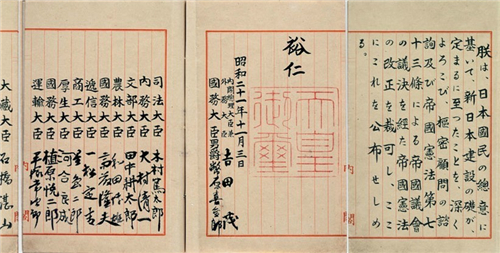 朕は、日本國民の總意に
基いて、新日本建設の礎が、
定まるに至つたことを、深く
よろこび、樞密顧問の諮
詢及び帝國憲法第七
十三条による帝國議會
の議決を経た帝國憲法
の改正を裁可し、ここ
にこれを公布せしめ
る。
裕仁
天皇御璽
昭和二十一年十一月三日
内閣総理大臣兼
外務大臣
吉田茂
國務大臣 男爵 幣原喜重郎
司法大臣 木村篤太郎
内務大臣 大村清一
文部大臣 田中耕太郎
農林大臣 和田博雄
國務大臣 斎藤隆夫
逓信大臣 一松定吉
商工大臣 星島二郎
厚生大臣 河合良成
國務大臣 植原悦二郎
運輸大臣 平塚常次郎
大藏大臣 石橋湛山
内閣
内閣